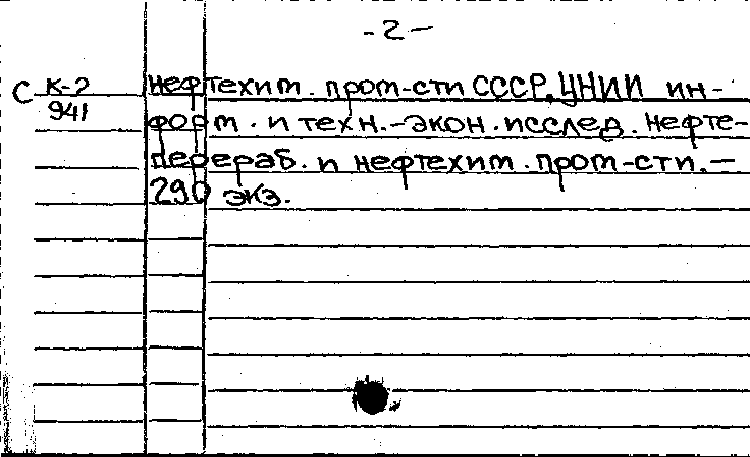 -2-
С К-2 нефтехим. пром-сти СССР, ЦНИИ ин-
941 форм. и техн.-экон. исслед. нефте-
перераб. и нефтехим. пром-сти. —
290 экз.